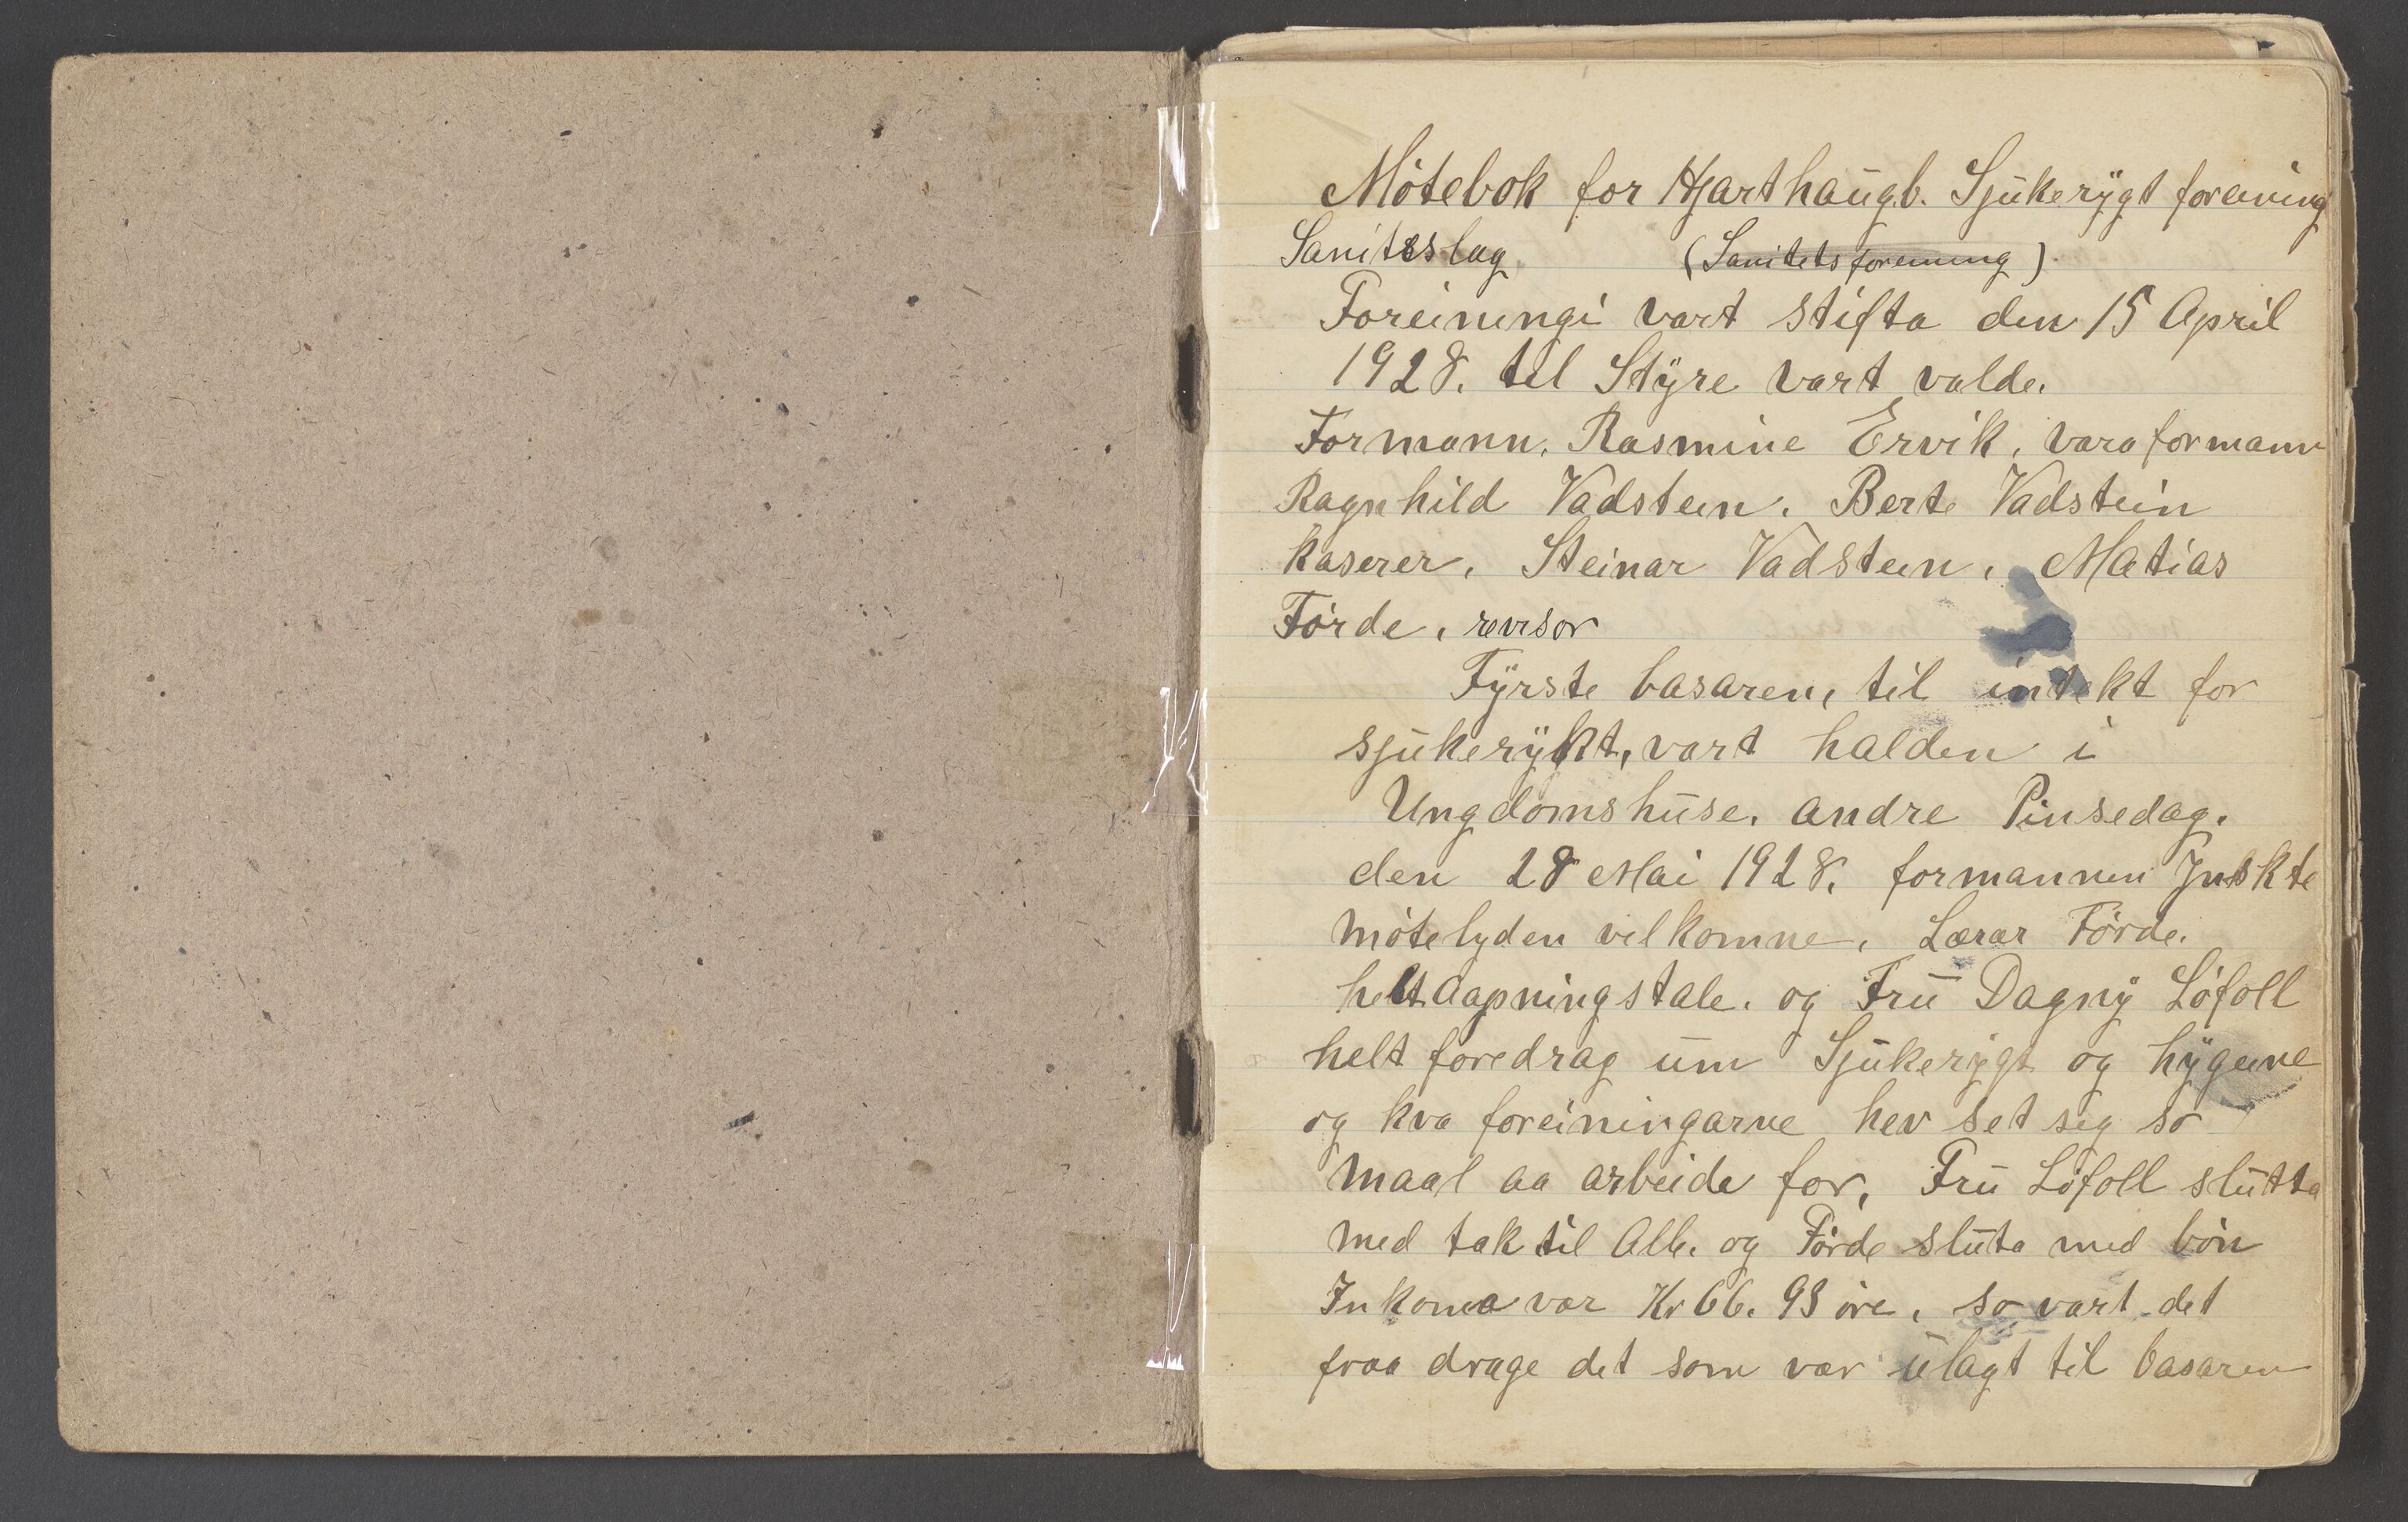 Mötebok for Hjarthaugb. Sjukerygt foreining
Sanitetslag (Sanitetsforening)
Foreiningi vart stifta den 15 April
1928. til Styre vart valde.
Formann. Rasmine Ervik, varaformann
Ragnhild Vadstein. Berte Vadstein
kaserer. Steinar Vadstein, Matias
Förde, revisor
Fyrste basaren, til intekt for
sjukerykt, vart halden i
Ungdomshuse. andre Pinsedag.
den 28 Mai 1928. formannen Jnskte
mötelyden velkomne. Lærar Förde.
helt Aapningstale. og Fru Dagny Löfoll
helt foredrag um Sjukerygt og hygeine
og kva foreiningarne hev set seg so
maal aa arbeide for, Fru Löfoll slutta
med tak til Alle. og Förde sluta med bön
Inkoma var Kr 66. 93 öre, so vart det
fraa drage det som var ulagt til basaren